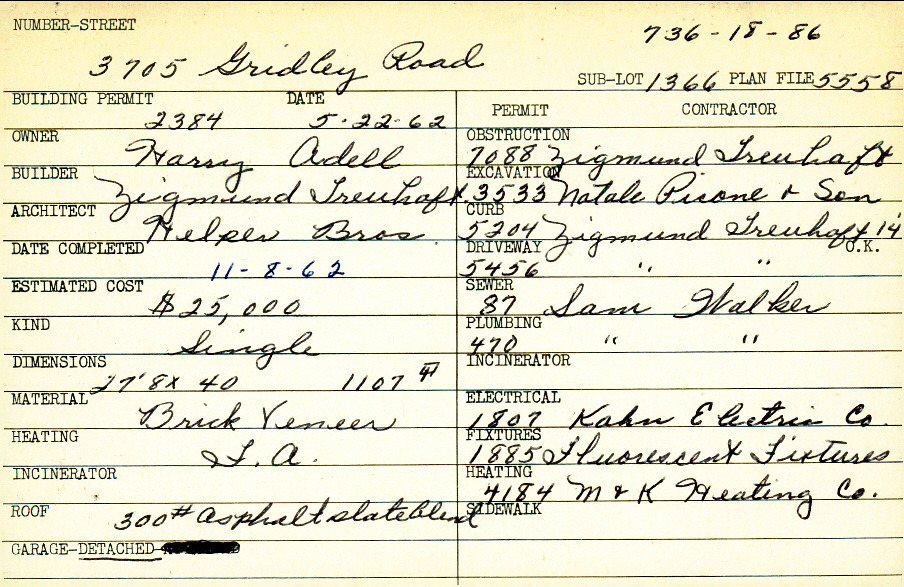 NUMBER-STREET
736-18-86
3705 Gridley Road
SUB-LOT 1366 PLAN FILE 5558
BUILDING PERMIT DATE
2384 5-22-62
OWNER
Harry Adell
BUILDER
Zigmund Treuhaft
ARCHITECT
Helper Bros.
DATE COMPLETED
11-8-62
ESTIMATED COST
$25,000
KIND
Single
DIMENSIONS
27'8 x 40 1107
MATERIAL
Brick Veneer
HEATING
F.A.
INCINERATOR
ROOF
300# asphalt slateblend
GARAGE-DETACHED
PERMIT CONTRACTOR
OBSTRUCTION
7088 Zigmund Treuhaft
EXCAVATION
3533 Natale Pisone & Son
CURB
5204 Zigmund Treuhaft 14'
O.K.
DRIVEWAY
5456 " "
SEWER
87 Sam Walker
PLUMBING
470 " "
INCINERATOR
ELECTRICAL
1807 Kahn Electric Co.
FIXTURES
1885 Fluorescent Fixtures
HEATING
4184 M & K Heating Co.
SIDEWALK